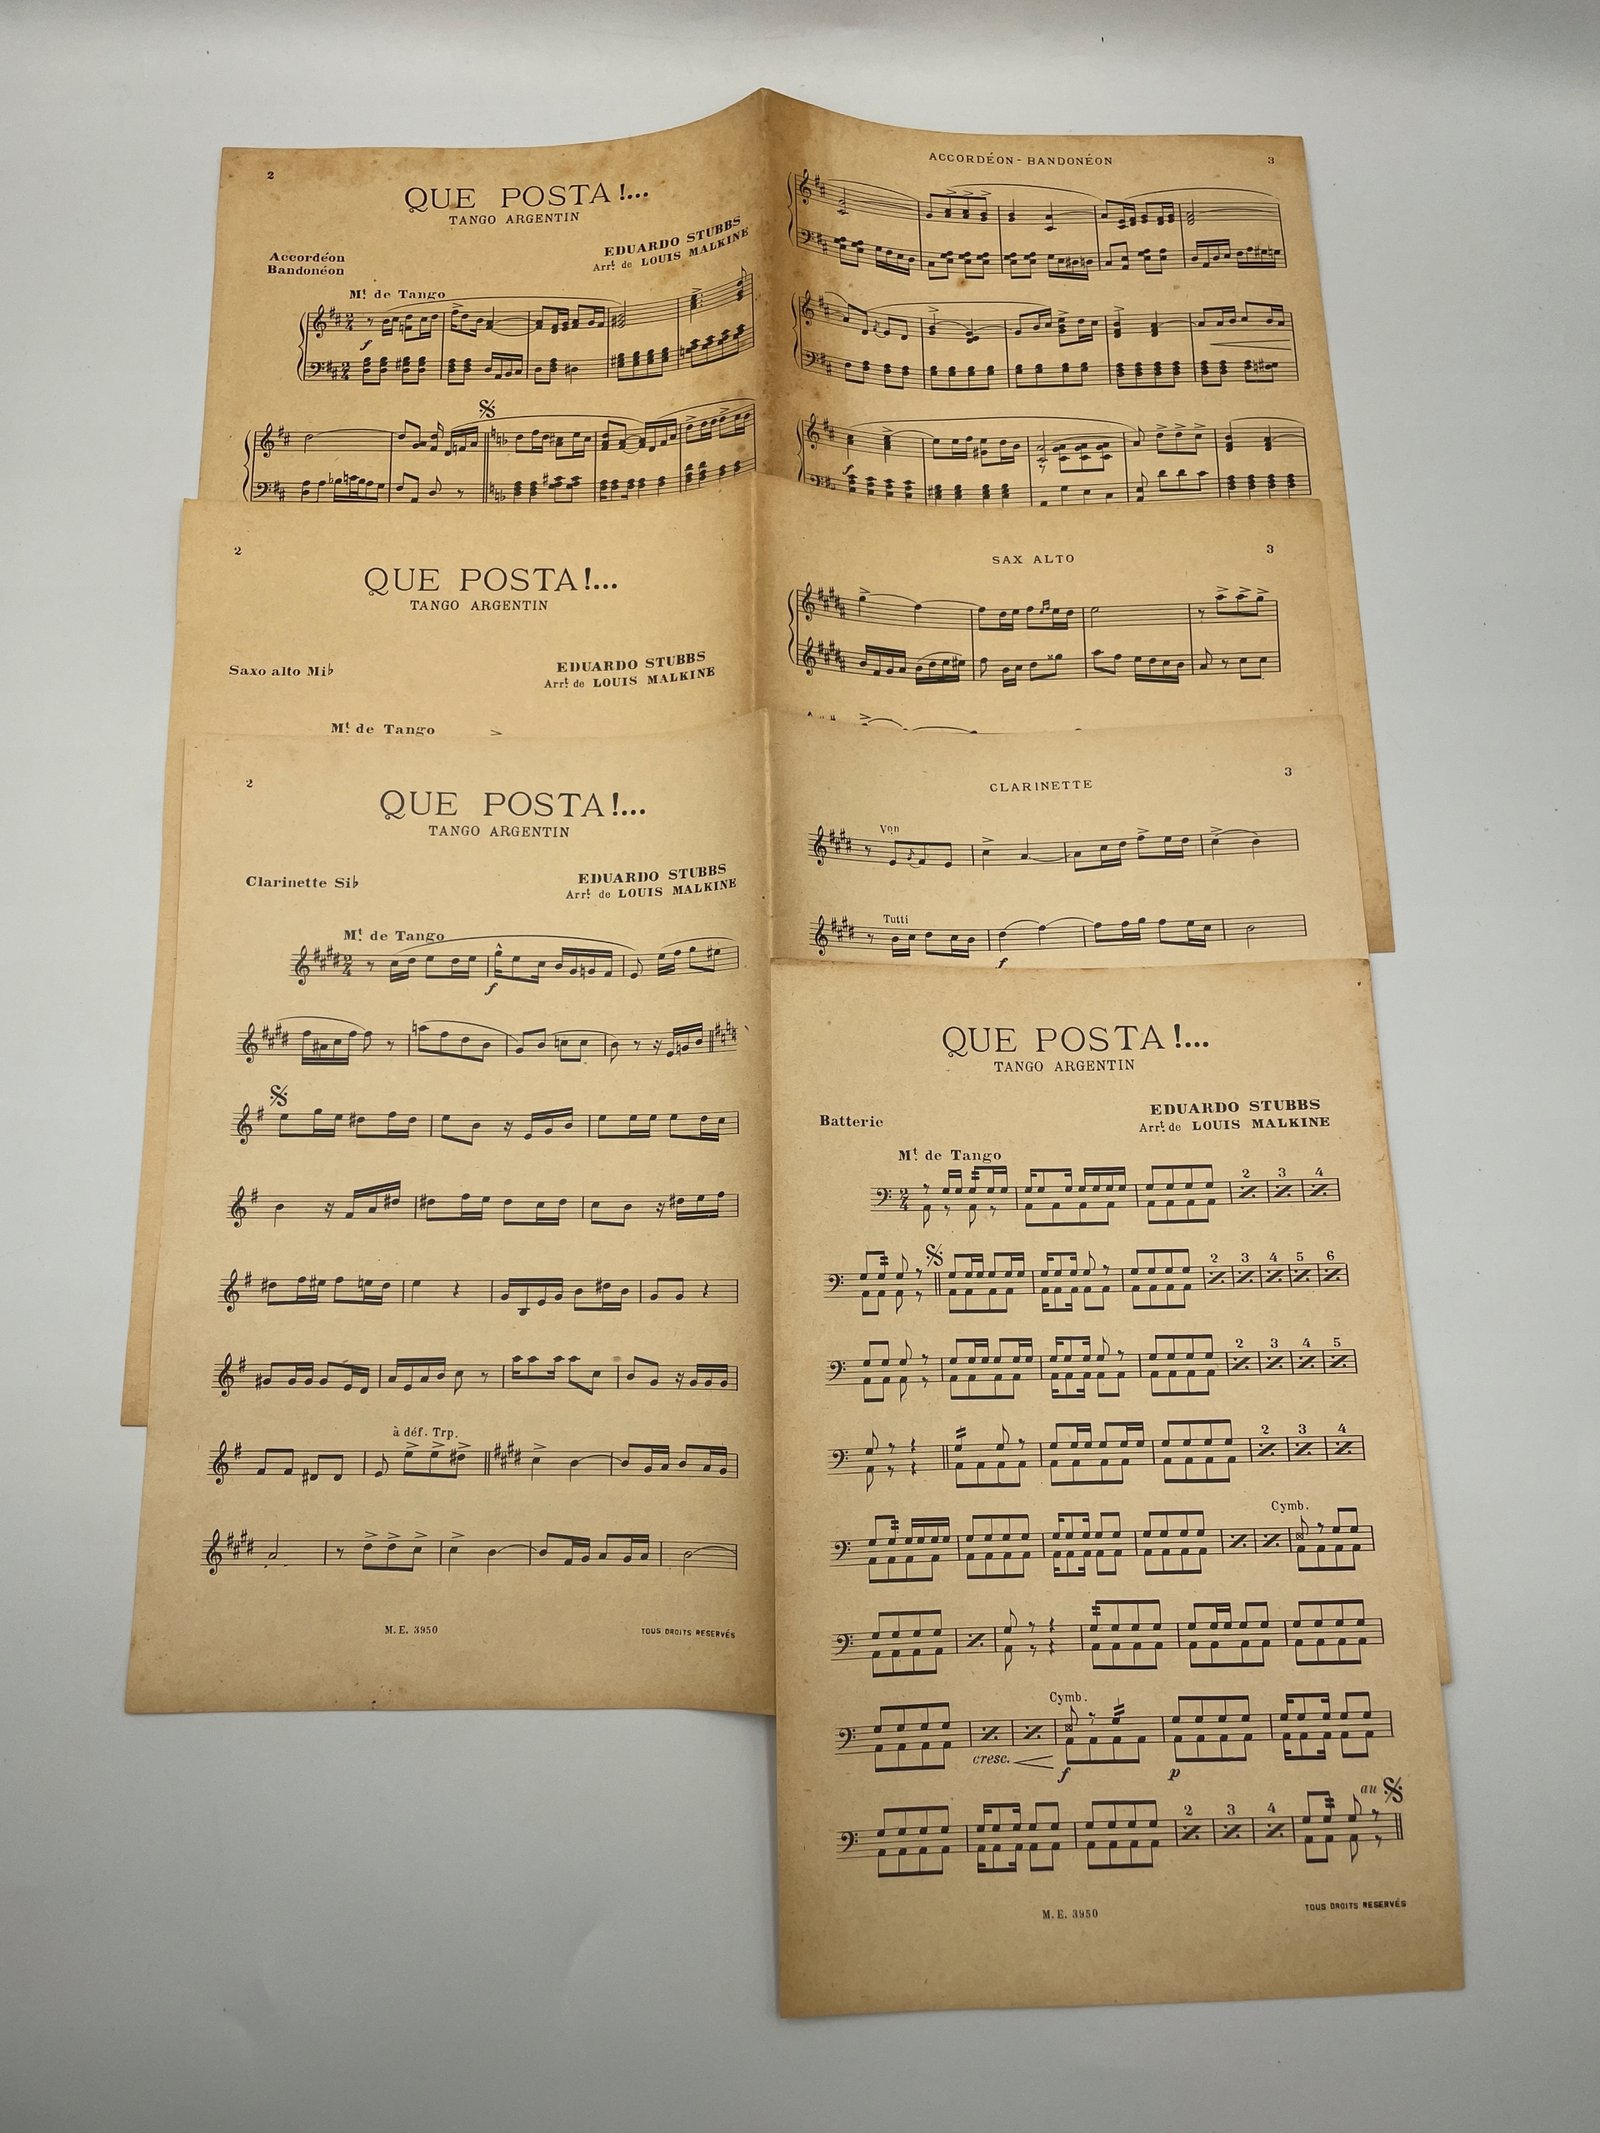 2
QUE POSTA!...
TANGO ARGENTIN
Accordéon
Bandonéon
EDUARDO STUBBS
Arrt de LOUIS MALKINE
Mt de Tango
f
ACCORDÉON - BANDONÉON
3
f
2
QUE POSTA!...
TANGO ARGENTIN
Saxo alto Mi♭
EDUARDO STUBBS
Arrt de LOUIS MALKINE
Mt de Tango
SAX ALTO
3
2
QUE POSTA!...
TANGO ARGENTIN
Clarinette Si♭
EDUARDO STUBBS
Arrt de LOUIS MALKINE
Mt de Tango
f
à déf. Trp.
M. E. 3950
TOUS DROITS RESERVÉS
CLARINETTE
3
Von
Tutti
f
QUE POSTA!...
TANGO ARGENTIN
Batterie
EDUARDO STUBBS
Arrt de LOUIS MALKINE
Mt de Tango
2 3 4
2 3 4 5 6
2 3 4 5
2 3 4
Cymb.
Cymb.
cresc.
f
p
au
2 3 4
M. E. 3950
TOUS DROITS RESERVÉS